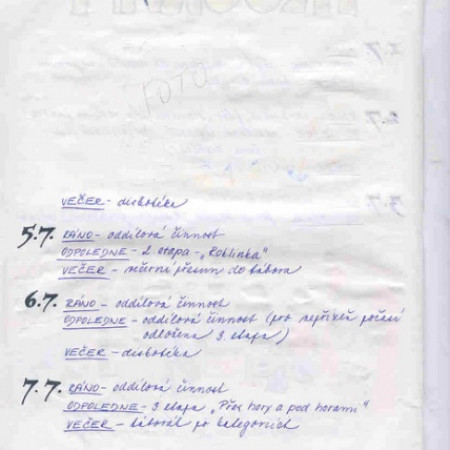 FOTO
VEČER - diskotéka
5.7. RÁNO - oddílová činnost
ODPOLEDNE - 2. etapa - "Rohlinka"
VEČER - noční přesun do tábora
6.7. RÁNO - oddílová činnost
ODPOLEDNE - oddílová činnost (pro nepřízeň počasí
odložena 3. etapa)
VEČER - diskotéka
7.7. RÁNO - oddílová činnost
ODPOLEDNE - 3. etapa "Přes hory a pod horami"
VEČER - táborák po kategoriích